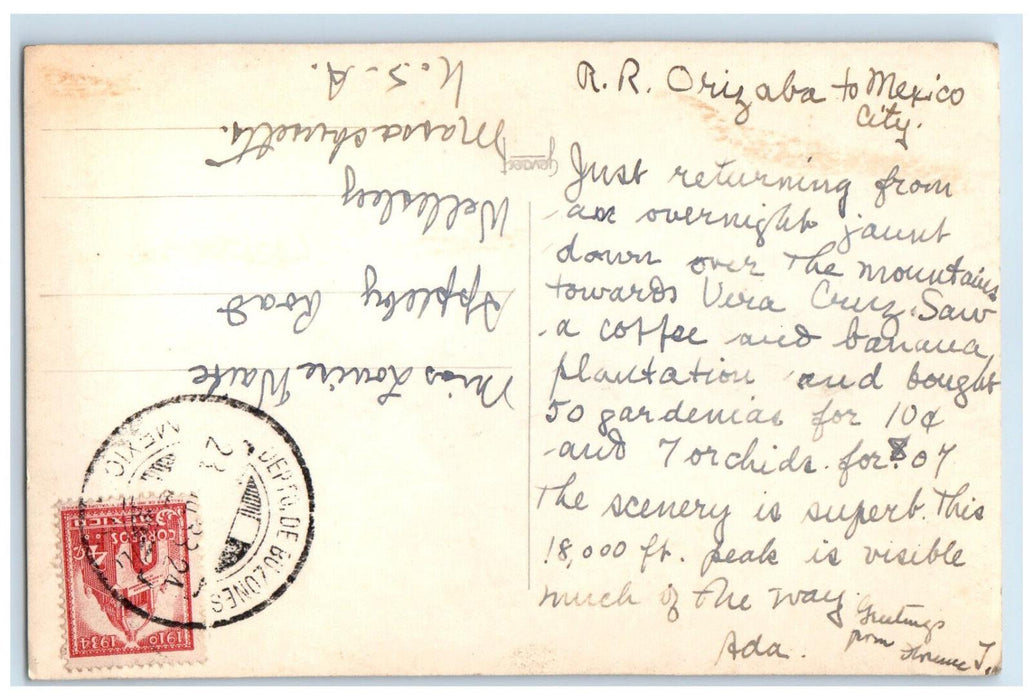 R.R. Orizaba to Mexico
City.
Just returning from
an overnight jaunt
down over the mountains
towards Vera Cruz. Saw
a coffee and banana
plantation and bought
50 gardenias for 10¢
and 7 orchids for 07
The scenery is superb. This
18,000 ft. peak is visible
much of the way.
Ada.
Greetings
from Florence T.
Miss Louise Waite
Appleby Road
Wellesley
Massachusetts.
U.S.A.
Gevaert
DEPTO. DE BUZONES
MEXICO
CORREOS
MEXICO
4¢
1910 1934